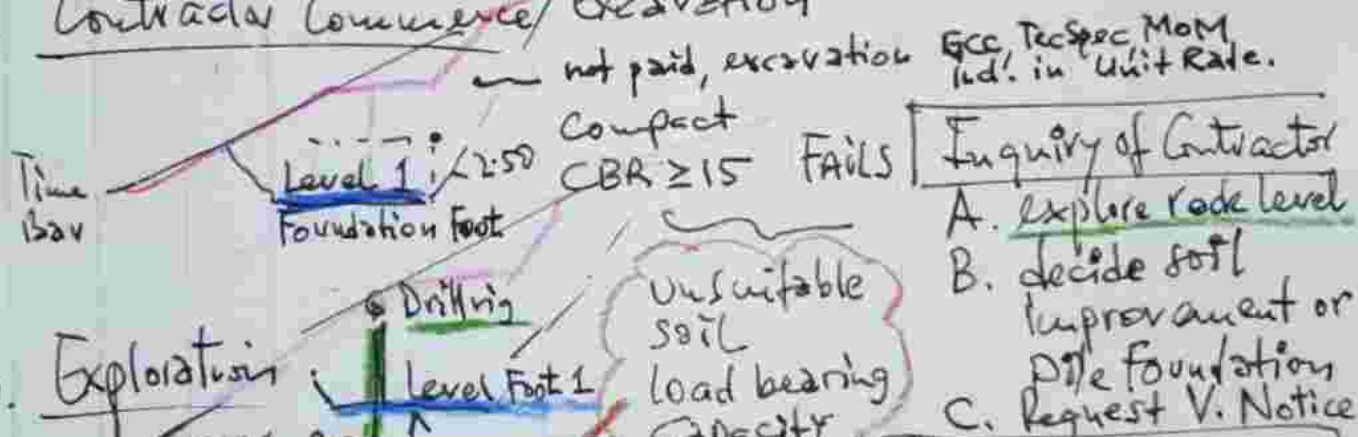 Contractor Commerce / Excavation
not paid, excavation
GCC, TecSpec, MoM,
ind. in Unit Rate.
Compact
CBR ≥ 15 FAILS
Time
Bar
Level 1 <2.50
Foundation Foot
Inquiry of Contractor
A. explore rock level
B. decide soil
improvement or
pile foundation
C. Request V. Notice
Drilling
Exploration
Level Foot 1
unsuitable
soil
load bearing
capacity